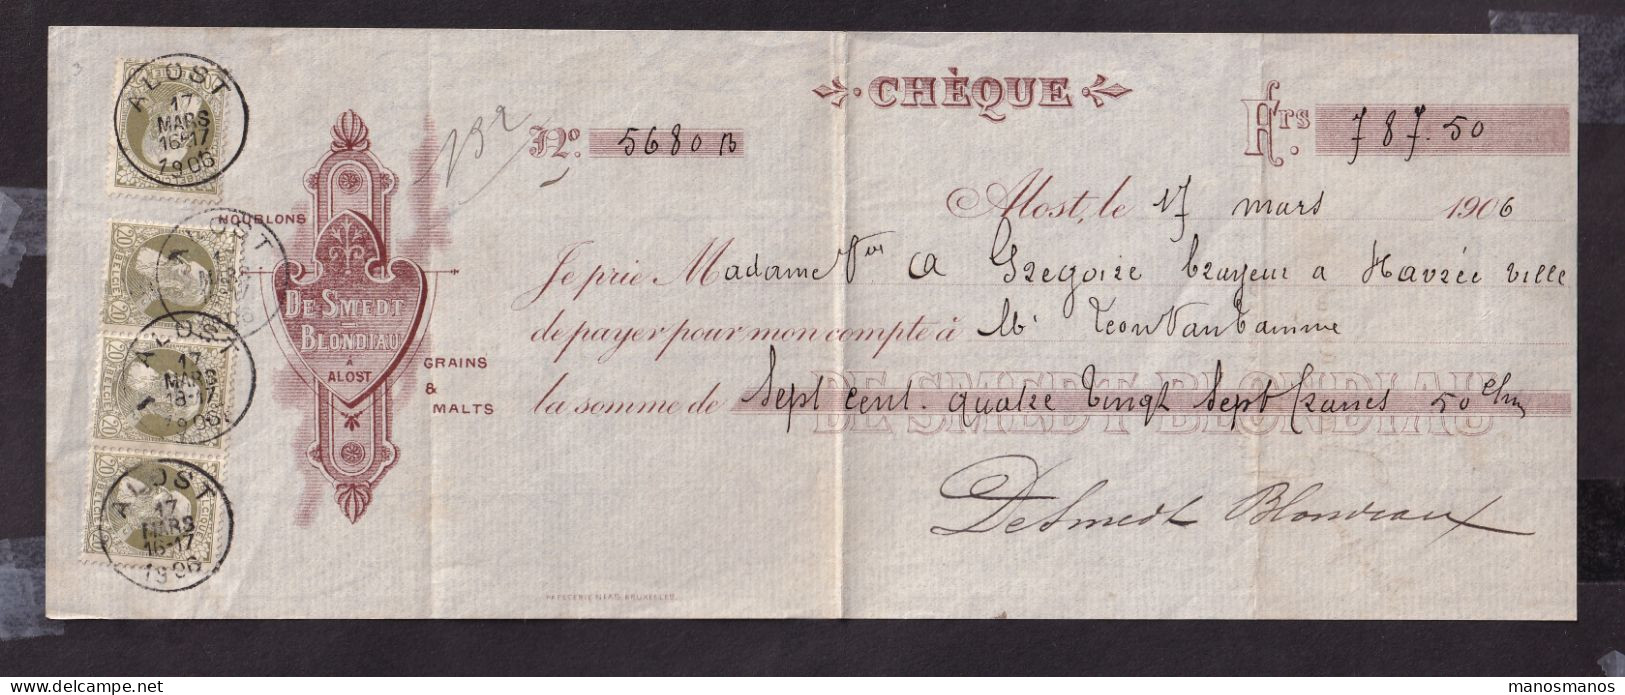 CHÈQUE
No. 5680 B
Frs. 787.50
Alost, le 17 mars 1906
Je prie Madame Vve A Gregoire brasseur a Havré ville
de payer pour mon compte à Mr Leon Vandamme
la somme de Sept cent quatre vingt sept francs 50 cmes
DE SMEDT BLONDIAU
DeSmedt Blondiau
HOUBLONS
DE SMEDT
–
BLONDIAU
À
ALOST
GRAINS
&
MALTS
PAPETERIE NIAS, BRUXELLES.
ALOST
17
MARS
16-17
1906
ALOST
1906
20 BELGIË 20
ALOST
17
MARS
16-17
1906
20 BELGIË 20
ALOST
17
MARS
16-17
1906
20 BELGIË 20
manosmanos